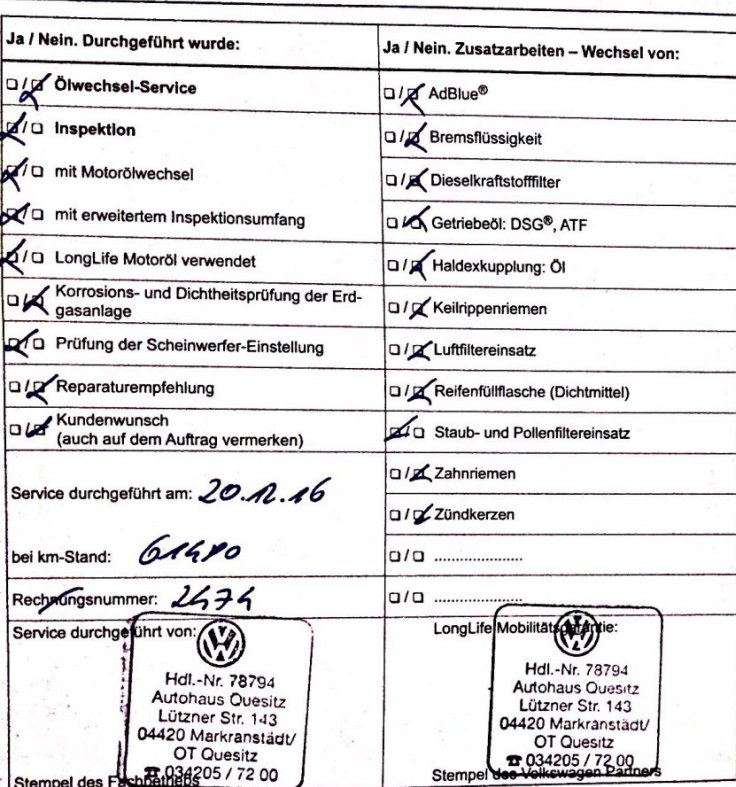 Ja / Nein. Durchgeführt wurde:
❏/❏ Ölwechsel-Service
❏/❏ Inspektion
❏/❏ mit Motorölwechsel
❏/❏ mit erweitertem Inspektionsumfang
❏/❏ LongLife Motoröl verwendet
❏/❏ Korrosions- und Dichtheitsprüfung der Erd-
gasanlage
❏/❏ Prüfung der Scheinwerfer-Einstellung
❏/❏ Reparaturempfehlung
❏/❏ Kundenwunsch
(auch auf dem Auftrag vermerken)
Service durchgeführt am: 20.12.16
bei km-Stand:
Rechnungsnummer: 2474
Service durchgeführt von:
Hdl.-Nr. 78794
Autohaus Quesitz
Lützner Str. 143
04420 Markranstädt/
OT Quesitz
☎ 034205 / 72 00
Stempel des Fachbetriebs
Ja / Nein. Zusatzarbeiten – Wechsel von:
❏/❏ AdBlue®
❏/❏ Bremsflüssigkeit
❏/❏ Dieselkraftstofffilter
❏/❏ Getriebeöl: DSG®, ATF
❏/❏ Haldexkupplung: Öl
❏/❏ Keilrippenriemen
❏/❏ Luftfiltereinsatz
❏/❏ Reifenfüllflasche (Dichtmittel)
❏/❏ Staub- und Pollenfiltereinsatz
❏/❏ Zahnriemen
❏/❏ Zündkerzen
❏/❏ ......................
❏/❏ ......................
LongLife Mobilitätsgarantie:
Hdl.-Nr. 78794
Autohaus Quesitz
Lützner Str. 143
04420 Markranstädt/
OT Quesitz
☎ 034205 / 72 00
Stempel des Volkswagen Partners